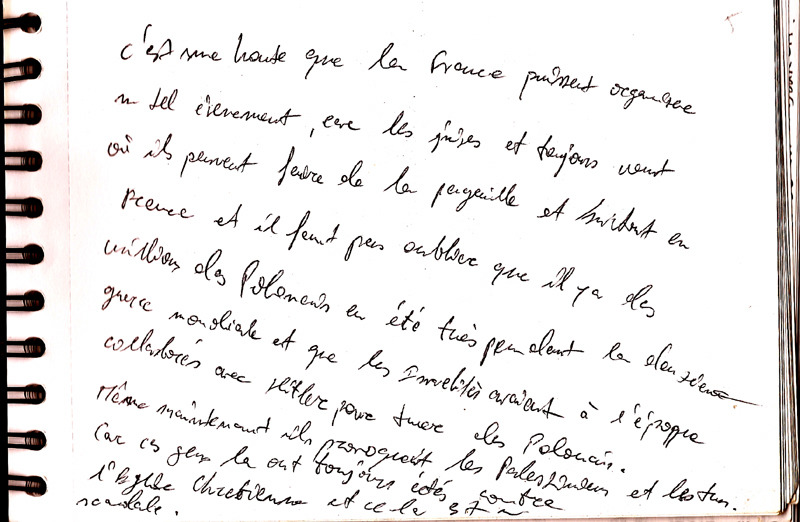 c'est une honte que la France puissent organisee
un tel évenement, car les juifes et toujours veut
où ils peuvent fendre de la pagaille et surtout en
France et il faut pas oublier que il y a des
millions des Polonais en été tués pendant la deuxième
guerre mondiale et que les Israelités avaient à l'époque
collaborés avec Hitler pour tuer des Polonais.
Même maintenant ils provoquent les Palestiniens et les tus.
Car ces gens la ont toujours étés contre
l'Eglise Chretienne et ce la est un
scandale.